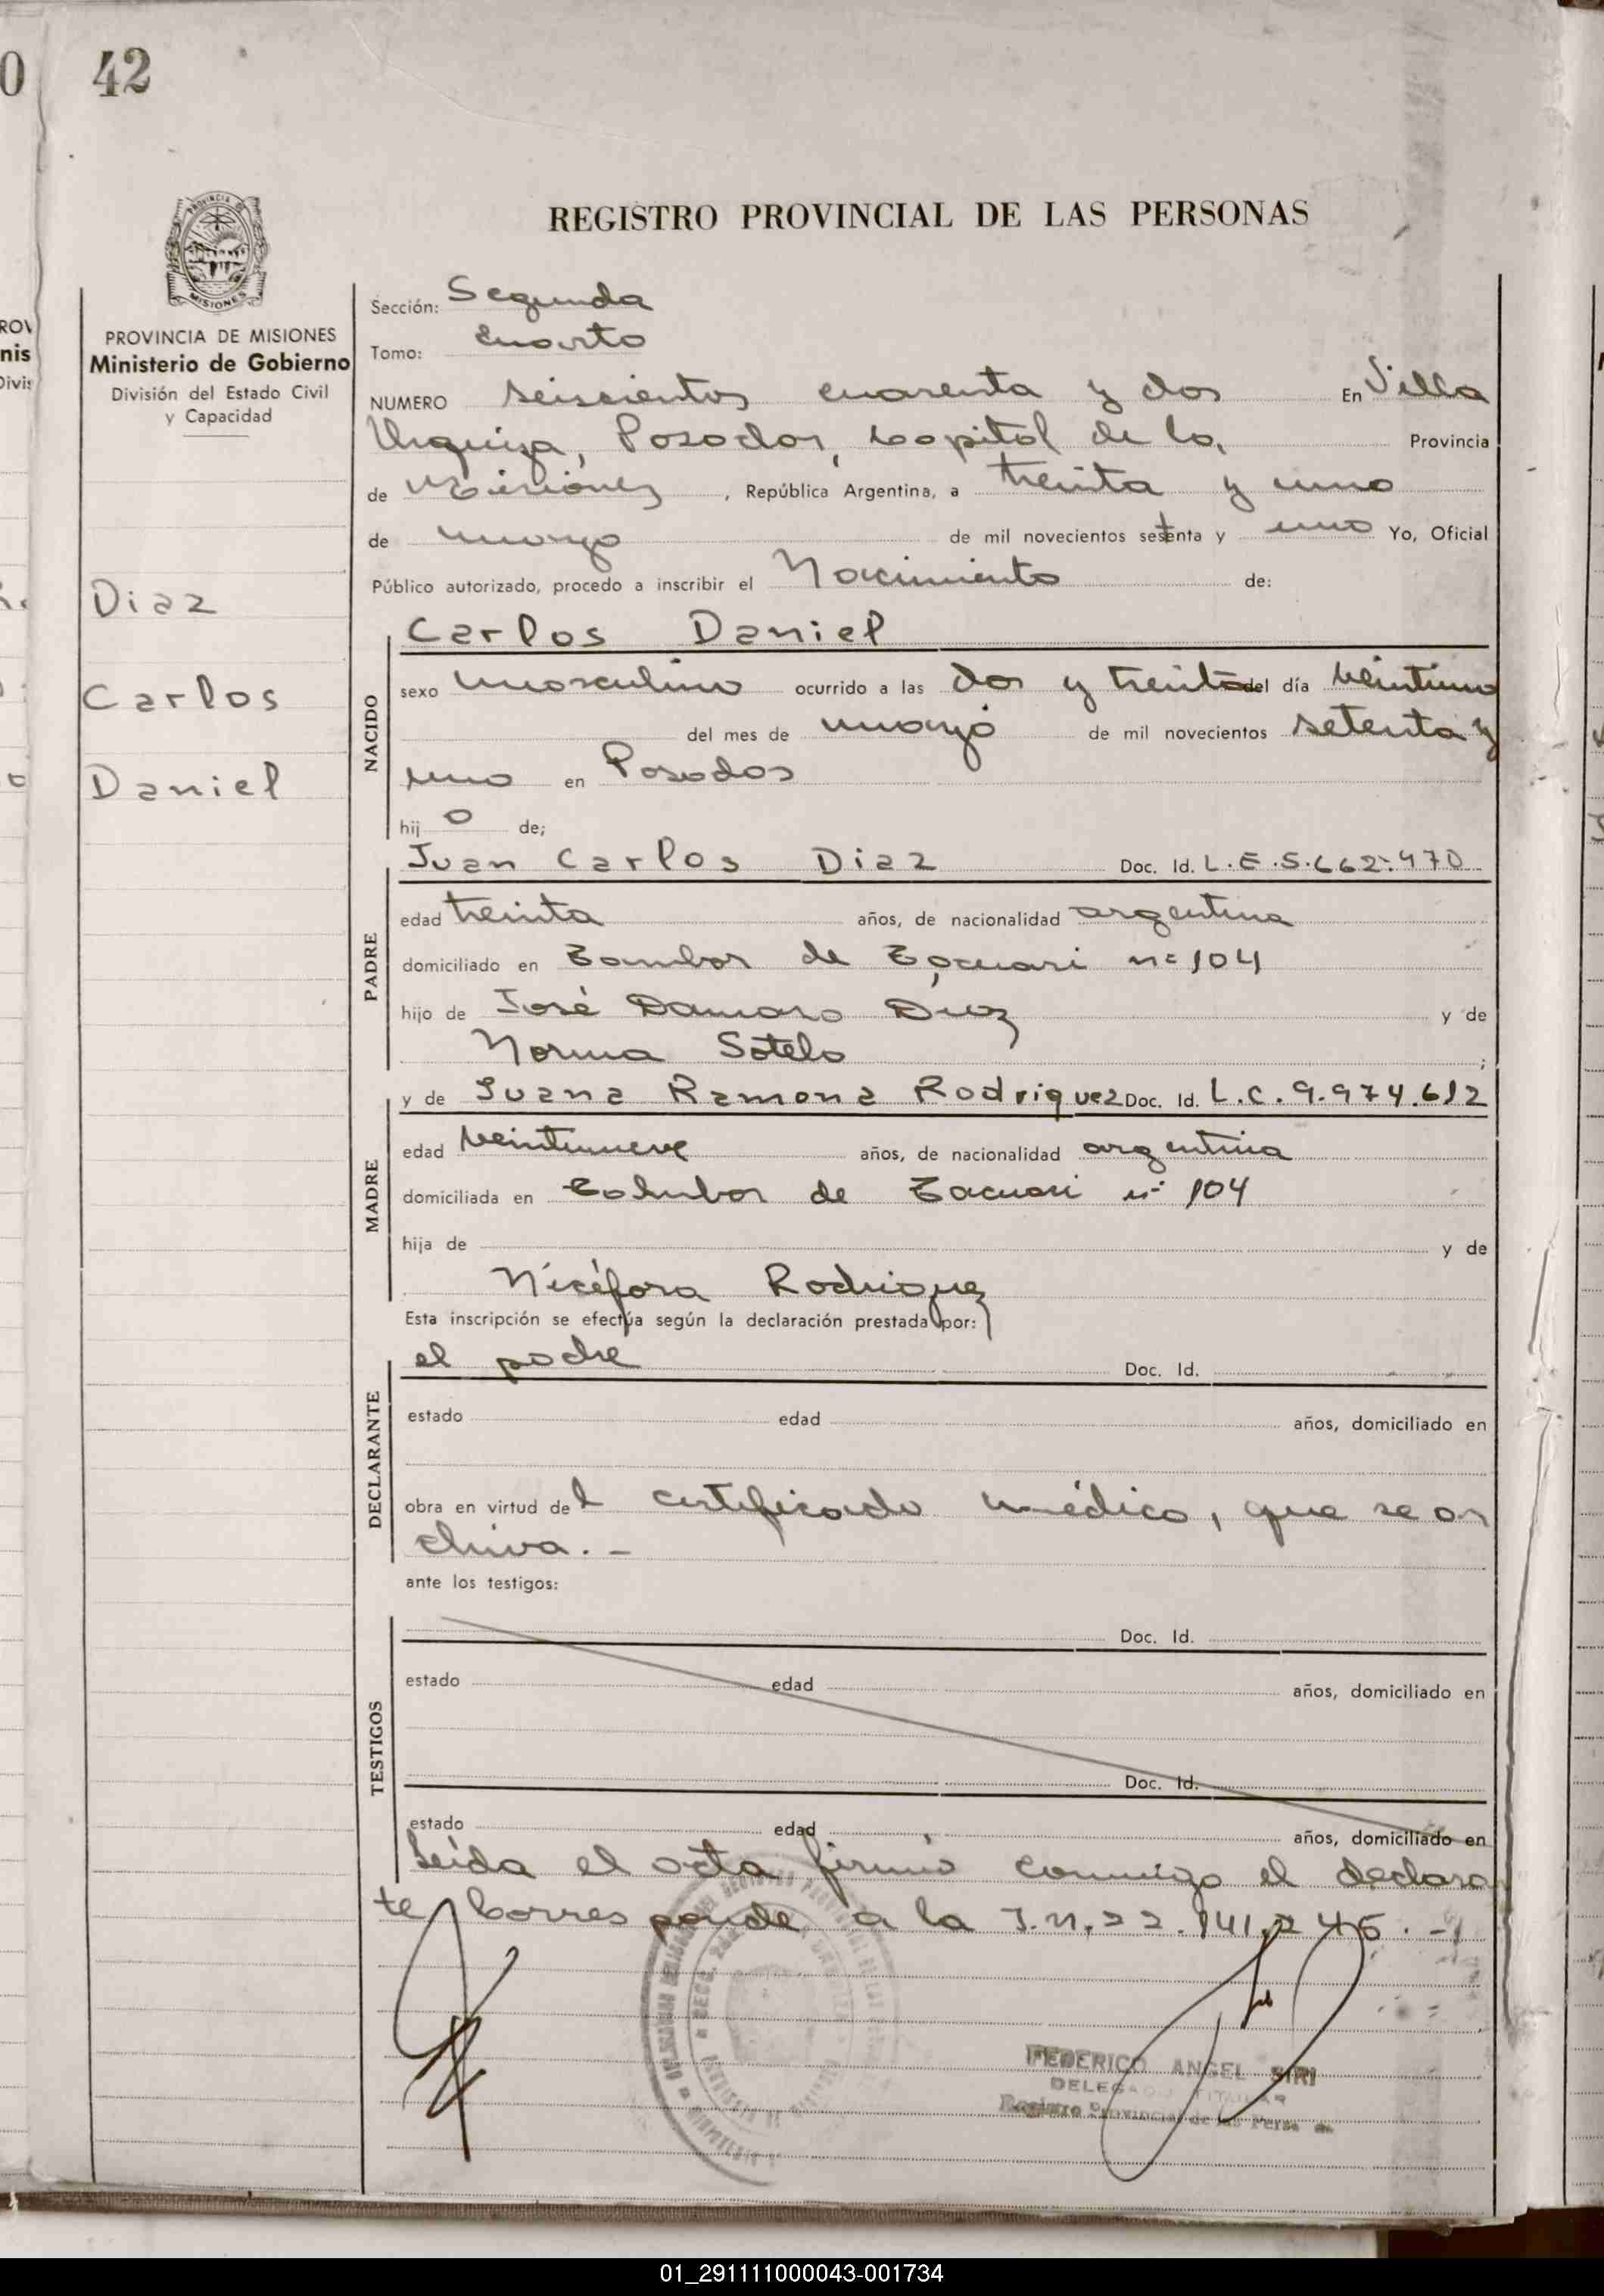 42
REGISTRO PROVINCIAL DE LAS PERSONAS
PROVINCIA DE MISIONES
Ministerio de Gobierno
División del Estado Civil
y Capacidad
Diaz
Carlos
Daniel
Sección: Segunda
Tomo: Cuarto
NUMERO seiscientos cuarenta y dos En Villa
Urquiza, Posadas, Capital de la, Provincia
de Misiones, República Argentina, a treinta y uno
de marzo de mil novecientos setenta y uno Yo, Oficial
Público autorizado, procedo a inscribir el Nacimiento de:
NACIDO
Carlos Daniel
sexo masculino ocurrido a las dos y treinta del día veintiuno
del mes de marzo de mil novecientos setenta y
uno en Posadas
hijo de;
PADRE
Juan Carlos Diaz Doc. Id. L.E.5.662.470
edad treinta años, de nacionalidad argentina
domiciliado en Tambor de Tacuari nº 104
hijo de José Damaso Diaz y de
Norma Sotelo ;
MADRE
y de Juana Ramona Rodriguez Doc. Id. L.C.9.974.612
edad veintinueve años, de nacionalidad argentina
domiciliada en Tambor de Tacuari nº 104
hija de y de
Nicéfora Rodriguez
Esta inscripción se efectúa según la declaración prestada por:
DECLARANTE
el padre Doc. Id.
estado edad años, domiciliado en
obra en virtud del certificado médico, que se ar
chiva.-
ante los testigos:
TESTIGOS
Doc. Id.
estado edad años, domiciliado en
Doc. Id.
estado edad años, domiciliado en
Leida el acta firmó conmigo el declaran
te Corresponde a la I.N.22.141.245.-
FEDERICO ANGEL SIRI
DELEGADO TITULAR
Registro Provincial de las Personas
01_291111000043-001734